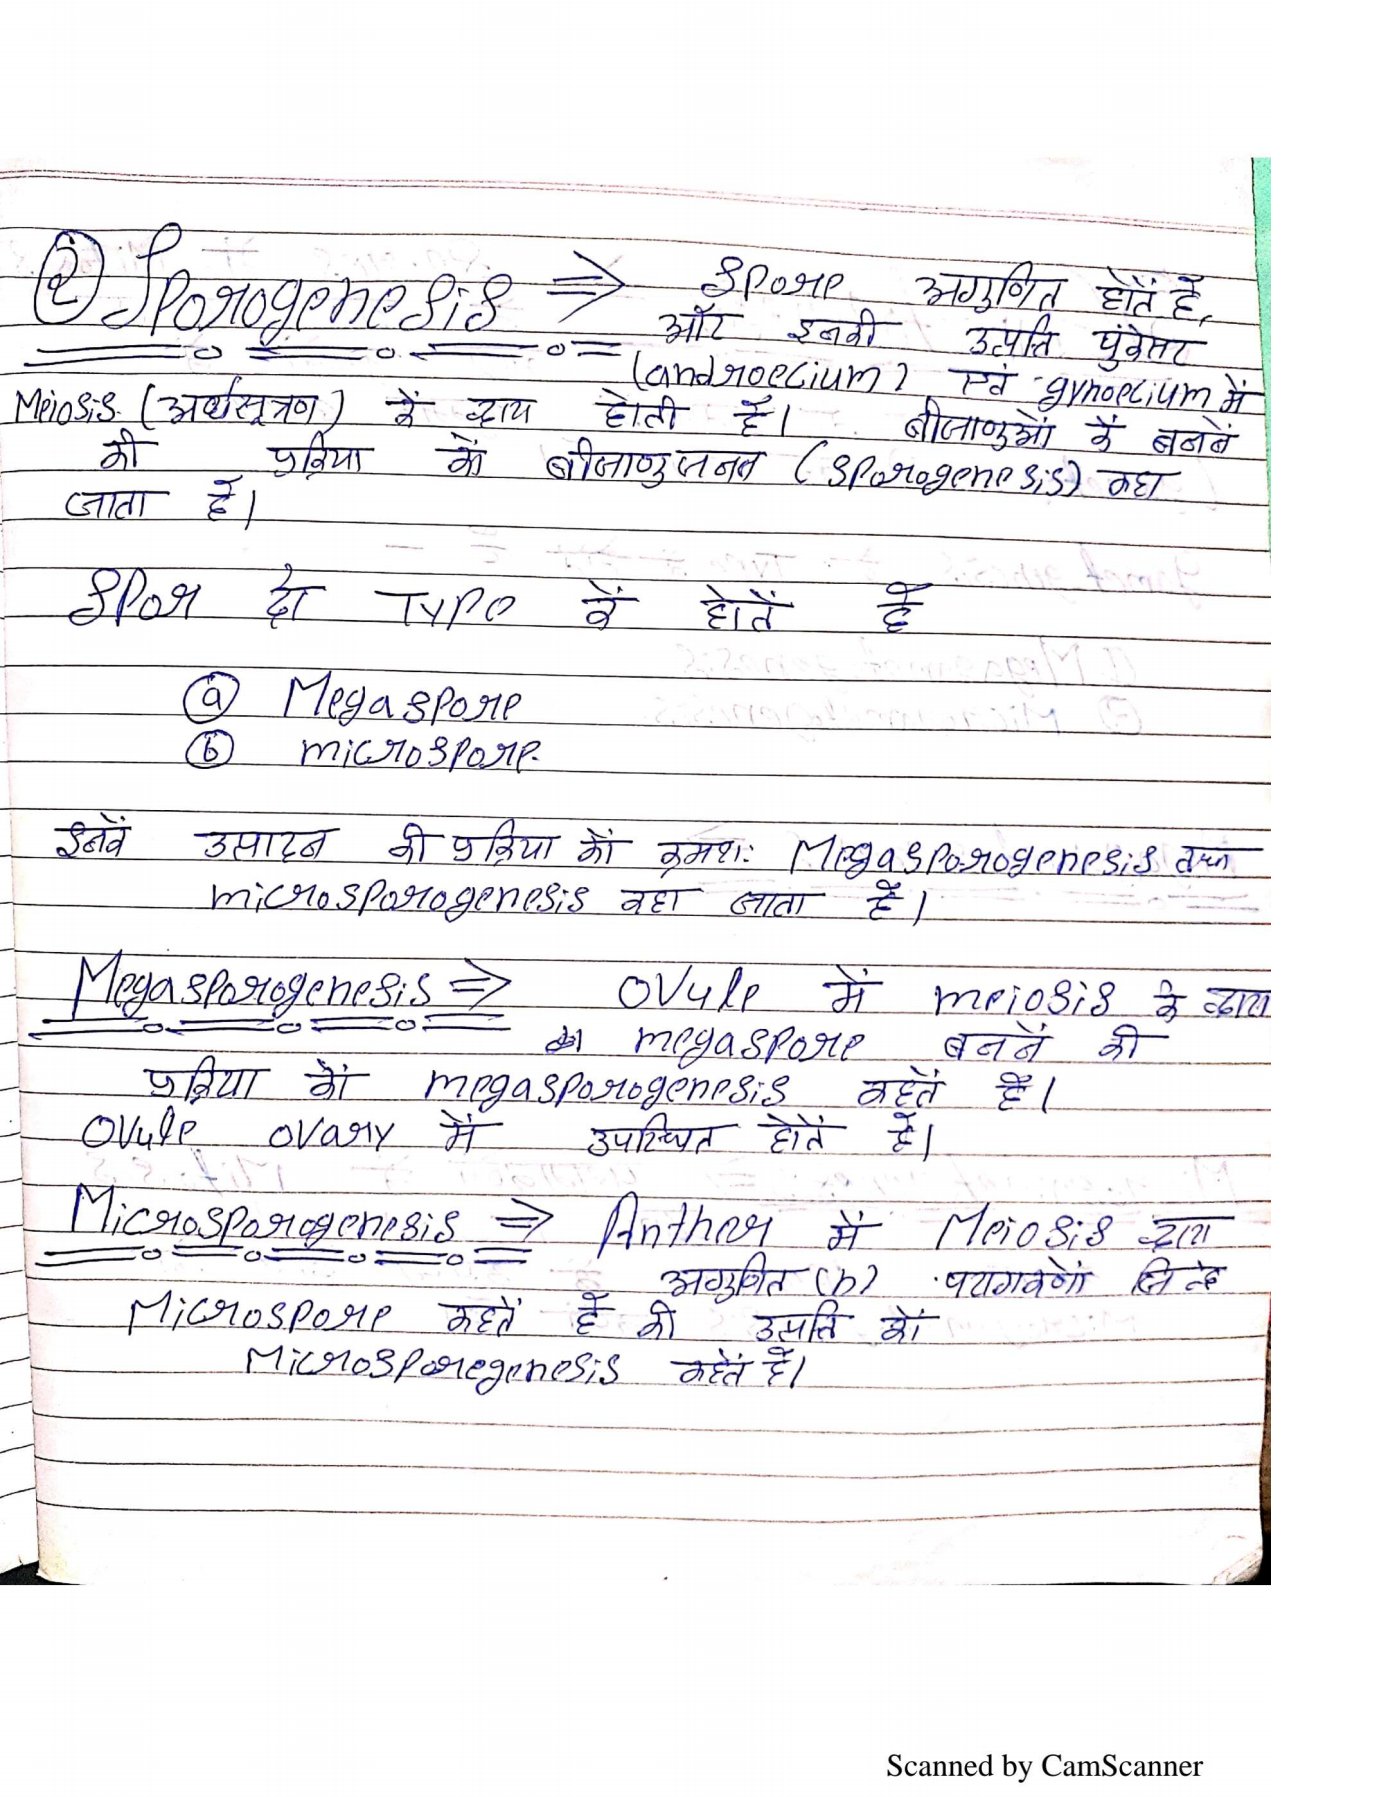 ② Sporogenesis ⇒ Spore अगुणित होतें हैं,
और इनकी उत्पति पुंकेसर
(androecium) एवं gynoecium में
Meiosis (अर्धसूत्रण) कें द्वारा होती हैं। बीजाणुओं कें बननें
की प्रक्रिया कों बीजाणुजनन (Sporogenesis) कहा
जाता हैं।
Spor दो Type कें होतें हैं
ⓐ Megaspore
ⓑ microspore.
इनकें उत्पादन की प्रक्रिया कों क्रमशः Megasporogenesis तथा
microsporogenesis कहा जाता हैं।
Megasporogenesis ⇒ Ovule में meiosis के द्वारा
megaspore बननें की
प्रक्रिया कों megasporogenesis कहतें हैं।
Ovule ovary में उपस्थित होतें हैं।
Microsporogenesis ⇒ Anther में Meiosis द्वारा
अगुणित (n) परागकणों जिन्हें
Microspore कहतें हैं की उत्पति कों
Microsporegenesis कहतें हैं।
Scanned by CamScanner